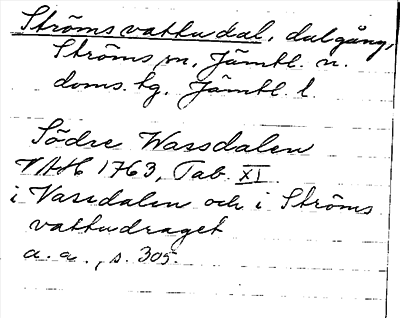 Ströms vattudal, dalgång,
Ströms sn, Jämtl. n.
doms. tg. Jämtl. l.
Södre Wassdalen
VAH 1763, Tab. XI.
i Vassdalen och i Ströms
vattudraget
a. a., s. 305.